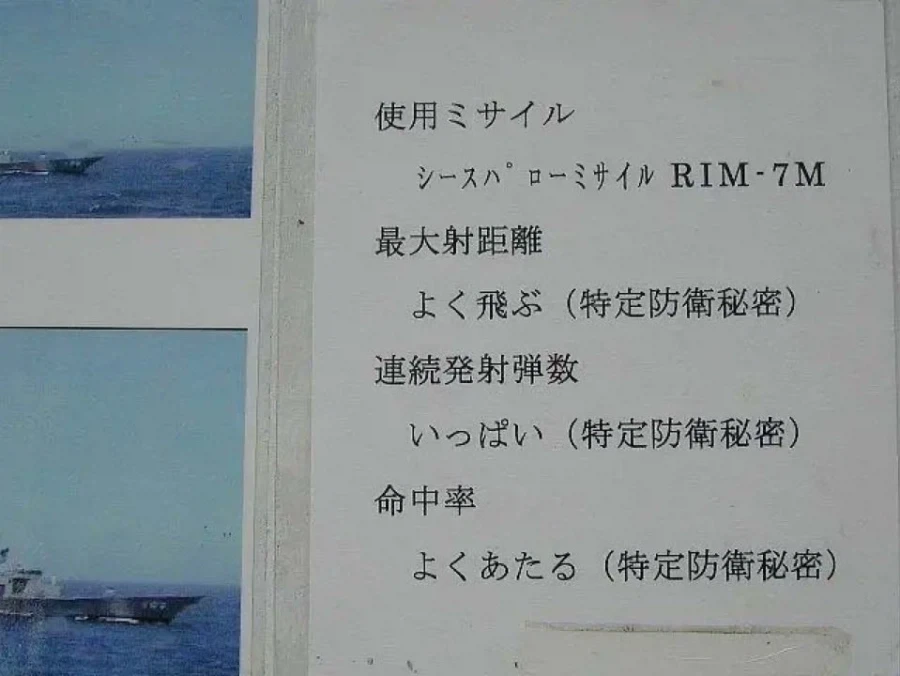 使用ミサイル
シースパローミサイル RIM-7M
最大射距離
よく飛ぶ（特定防衛秘密）
連続発射弾数
いっぱい（特定防衛秘密）
命中率
よくあたる（特定防衛秘密）